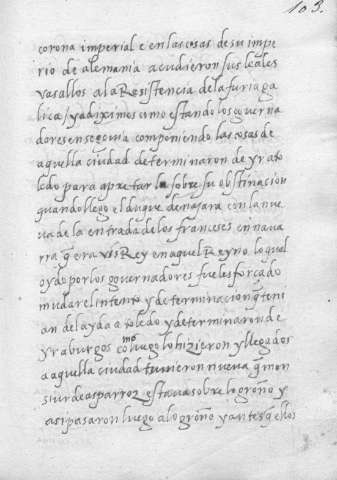 103.
corona imperial e en las cosas de su impe
rio de alemania acudieron sus leales
vasallos a la Resistencia de la furia ga
lica / ya diximos como estando los governa
dores en segovia componiendo las cosas de
aquella ciudad determinaron de yr a to
ledo para apretar la sobre su obstinacion
quando llego el duque de najara con la nue
va de la entrada de los franceses en nava
rra q̃ era vis Rey en aquel Reyno lo qual
oydo por los governadores fue les forçado
mudar el intento y determinacion q̃ teni
an de la yda a toledo y determinaron de
yr a burgos como luego lo hizieron y llegados
a aquella ciudad tuvieron nueva q̃ mon
siur de asparroz estava sobre logroño y
asi pasaron luego a logroño y antes q̃ ellos